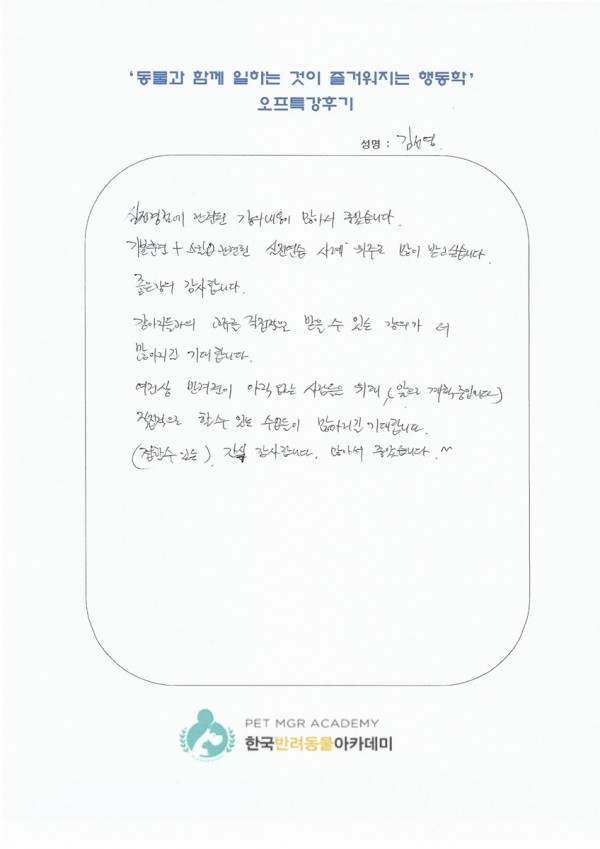 '동물과 함께 일하는 것이 즐거워지는 행동학'
오프특강후기
성명 : 김선영
실전경험에 관련된 강의내용이 많아서 좋았습니다.
기본훈련 + 관련된 실전연습 사례 위주로 많이 받고싶습니다.
좋은강의 감사합니다.
강아지들과의 교감을 직접적으로 받을 수 있는 강의가 더
많아지길 기대합니다.
여건상 반려견이 아직 없는 사람들은 위해 (앞으로 계획중입니다)
직접적으로 할수 있는 수업들이 많아지길 기대합니다.
(접할수 있는) 감사합니다. 많아서 좋았습니다. ^^
PET MGR ACADEMY
한국반려동물아카데미